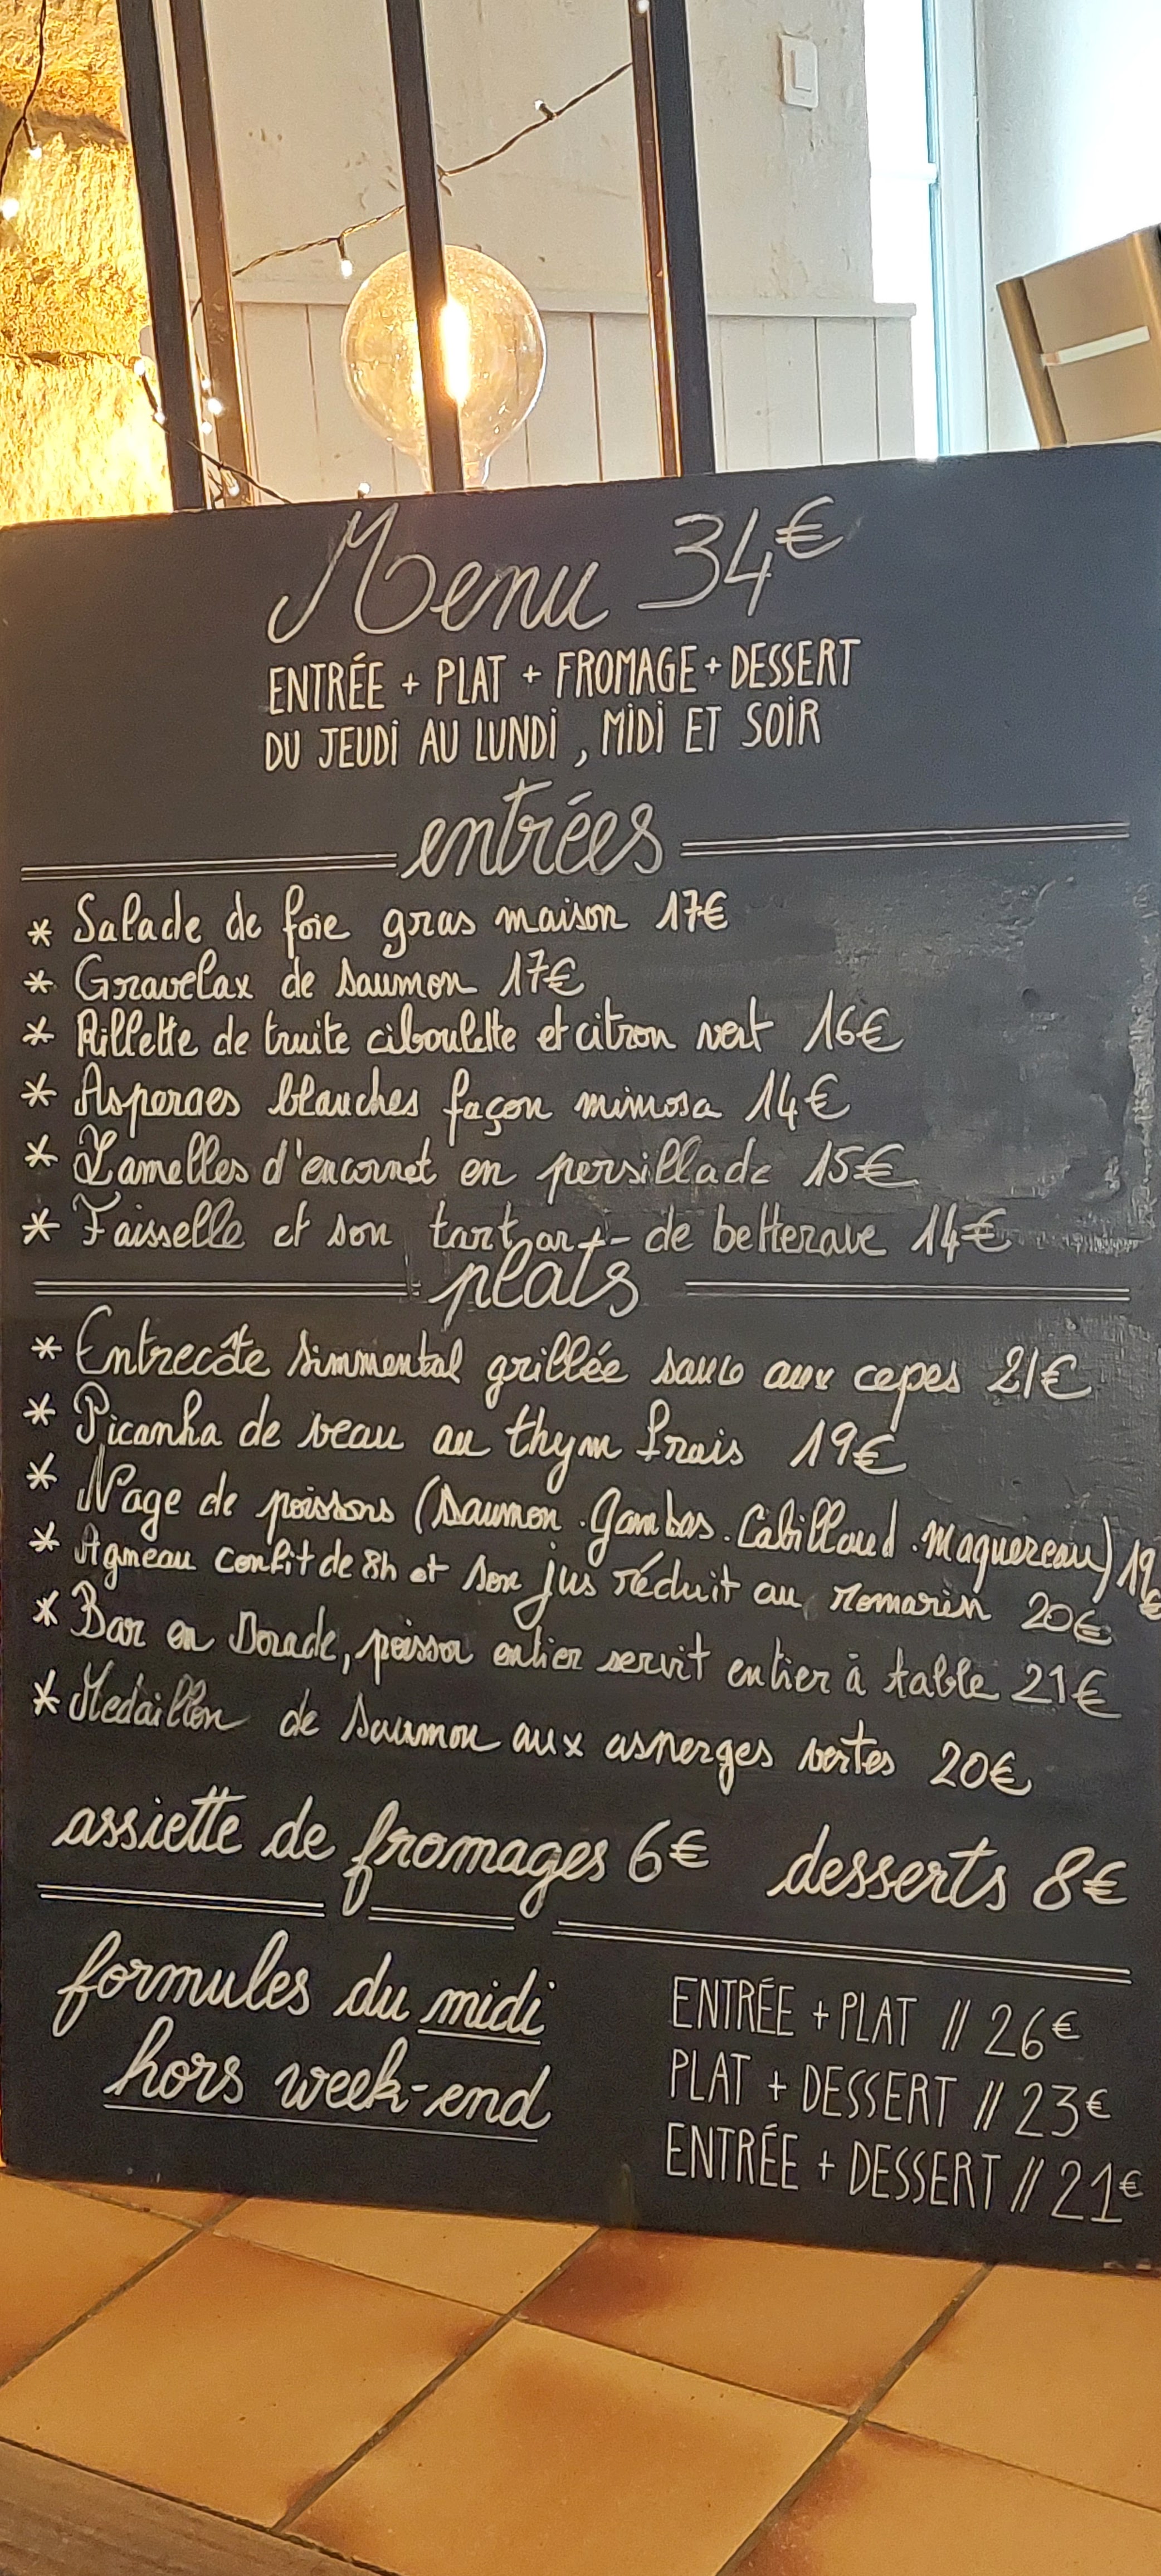 Menu 34€
ENTRÉE + PLAT + FROMAGE + DESSERT
DU JEUDI AU LUNDI, MIDI ET SOIR
entrées
* Salade de foie gras maison 17€
* Gravelax de saumon 17€
* Rillette de truite ciboulette et citron vert 16€
* Asperges blanches façon mimosa 14€
* Lamelles d'encornet en persillade 15€
* Faisselle et son tartare de betterave 14€
plats
* Entrecôte simmental grillée sauce aux cepes 21€
* Picanha de veau au thym frais 19€
* Nage de poissons (saumon. Gambas. Cabillaud. Maquereau) 19€
* Agneau confit de 8h et son jus réduit au romarin 20€
* Bar ou Dorade, poisson entier servit entier à table 21€
* Medaillon de saumon aux asperges vertes 20€
assiette de fromages 6€ desserts 8€
formules du midi
hors week-end
ENTRÉE + PLAT // 26€
PLAT + DESSERT // 23€
ENTRÉE + DESSERT // 21€